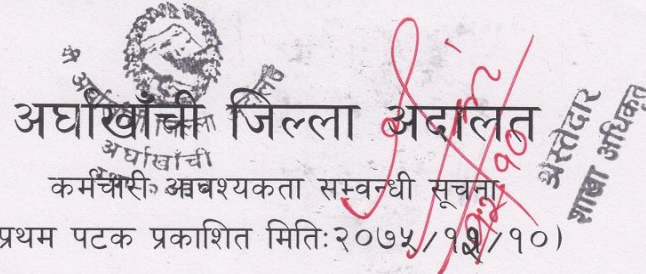 अर्घाखाँची जिल्ला अदालत
अर्घाखाँची
कर्मचारी आवश्यकता सम्वन्धी सूचना
प्रथम पटक प्रकाशित मितिः२०७५/१२/१०)
श्रेस्तेदार
शाखा अधिकृत